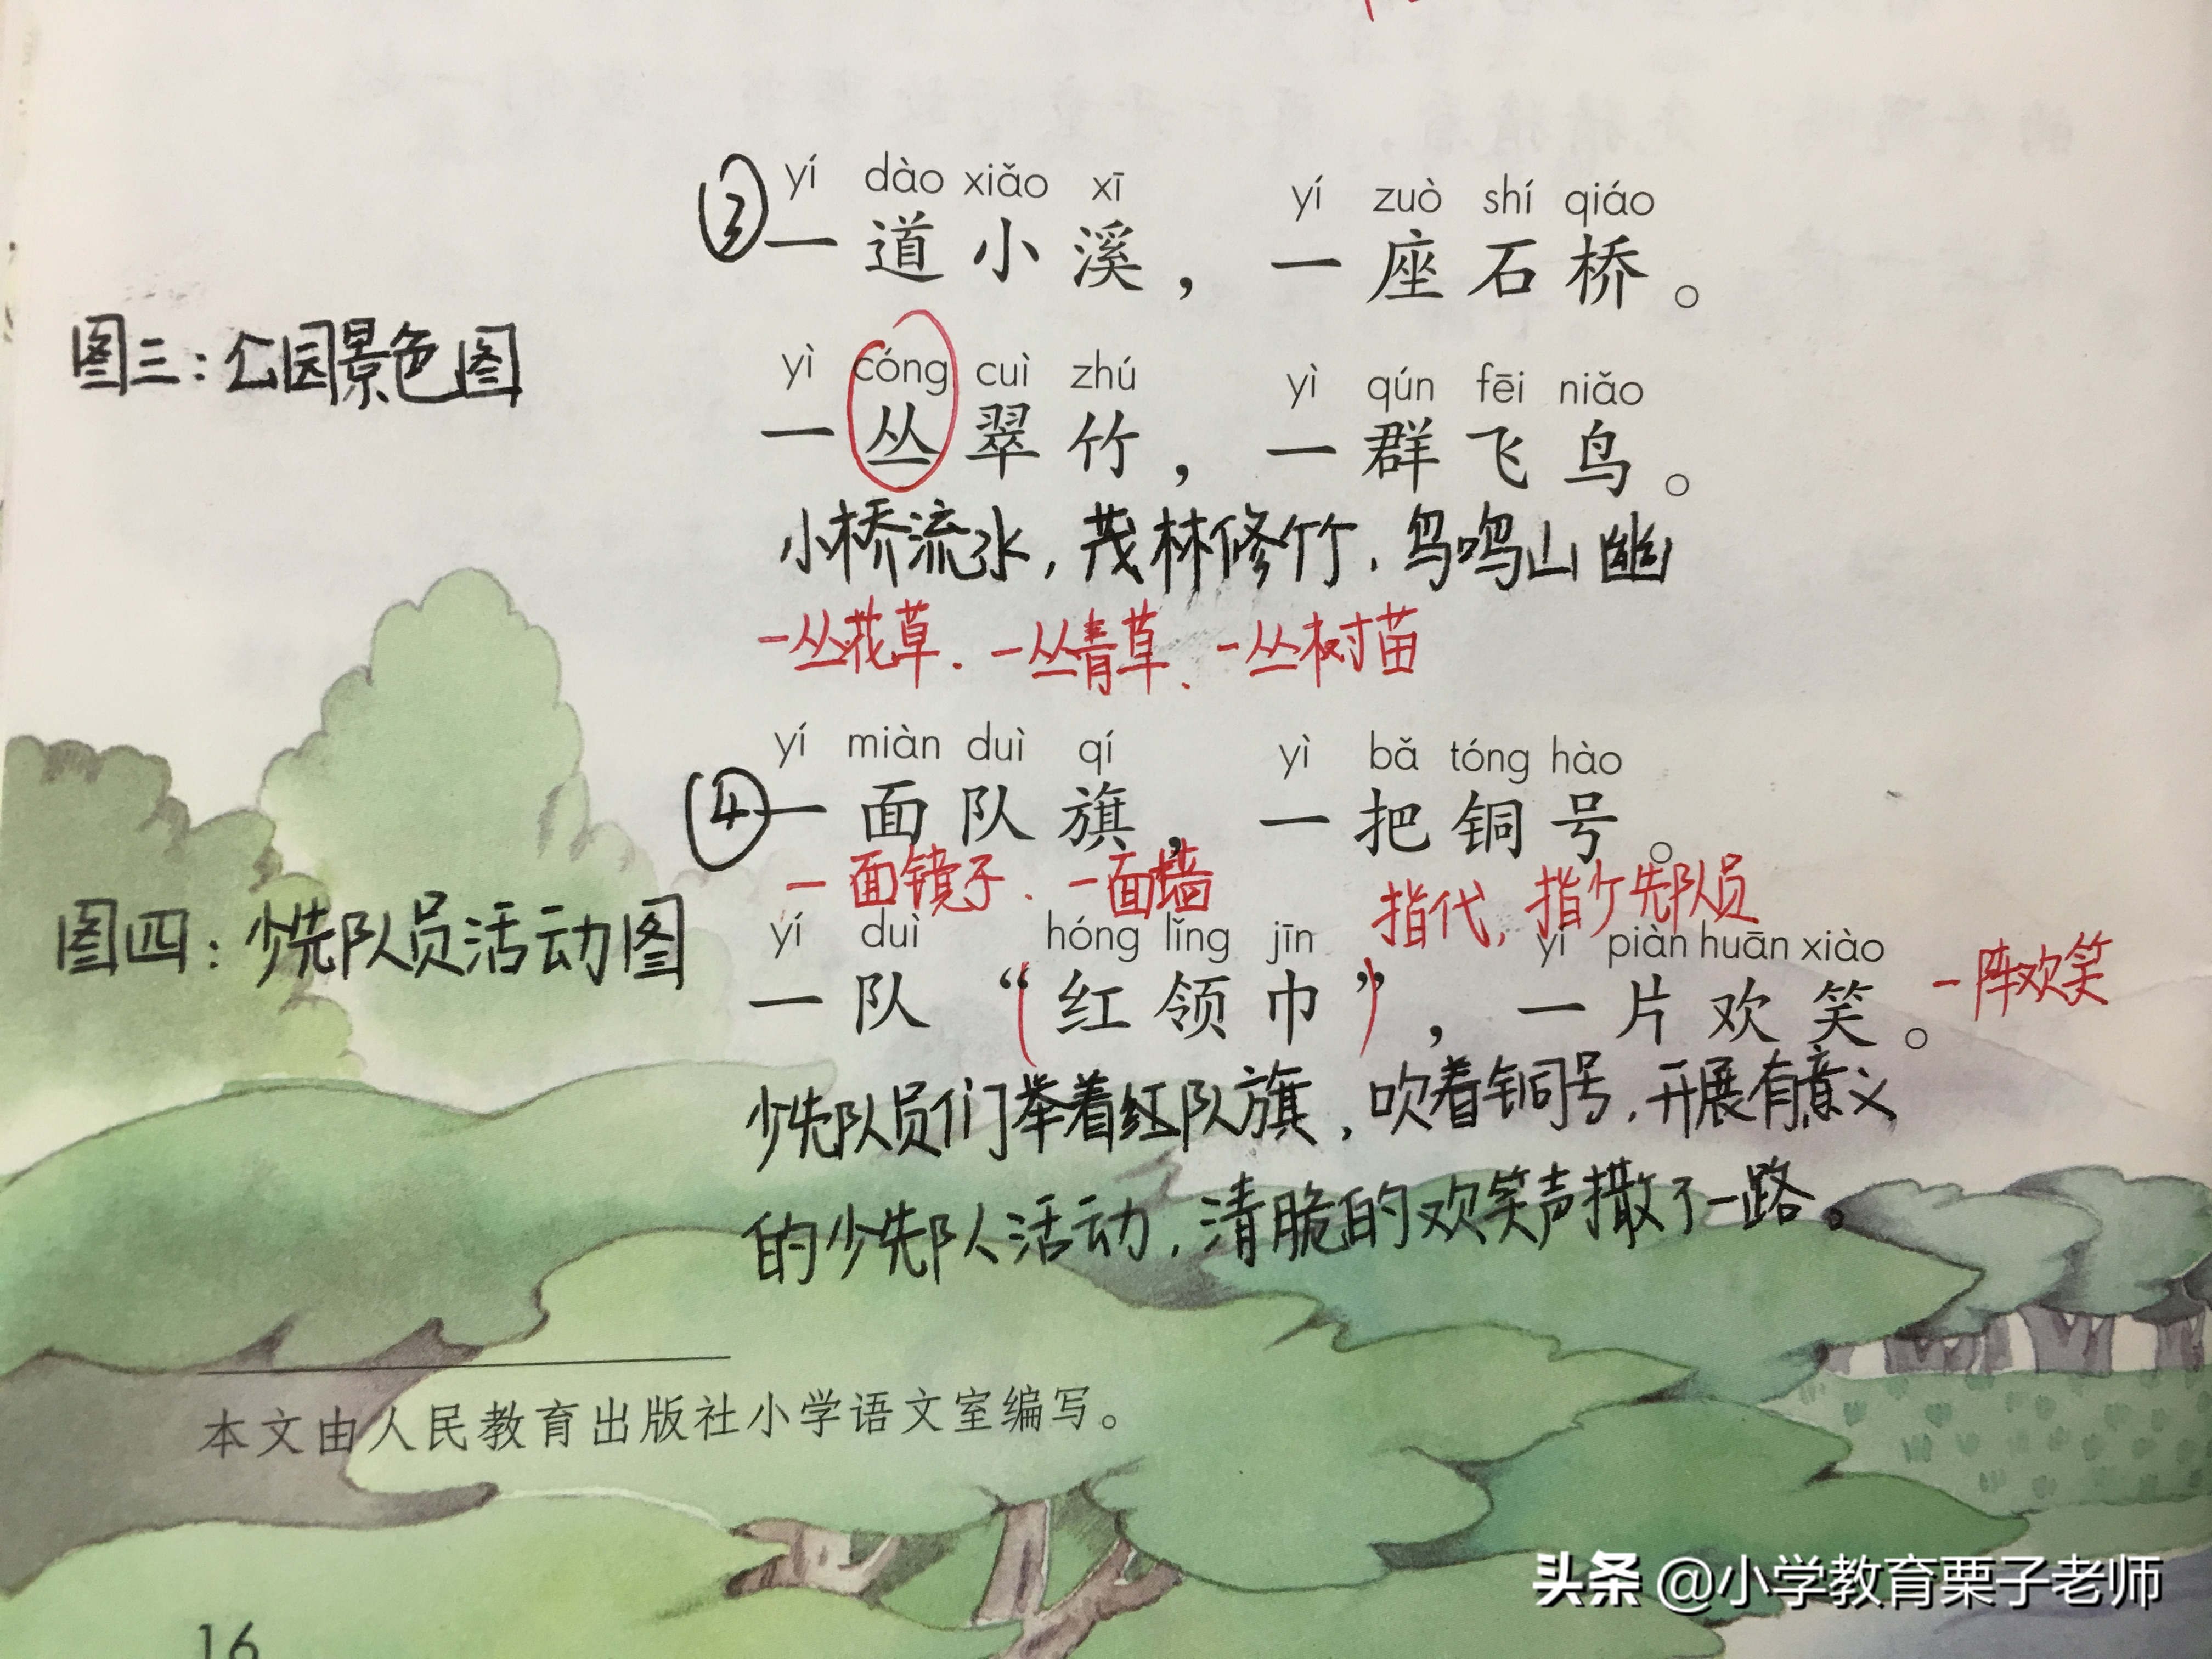 ③ yí dào xiǎo xī yí zuò shí qiáo
一道小溪，一座石桥。
图三：公园景色图
yì cóng cuì zhú yì qún fēi niǎo
一丛翠竹，一群飞鸟。
小桥流水，茂林修竹，鸟鸣山幽
一丛花草、一丛青草、一丛树苗
yí miàn duì qí yì bǎ tóng hào
④一面队旗，一把铜号。
一面镜子、一面墙
指代，指少先队员
图四：少先队员活动图
yí duì hóng lǐng jīn yí piàn huān xiào
一队“红领巾”，一片欢笑。
一阵欢笑
少先队员们举着红队旗，吹着铜号，开展有意义
的少先队活动，清脆的欢笑声撒了一路。
本文由人民教育出版社小学语文室编写。
16
头条 @小学教育栗子老师